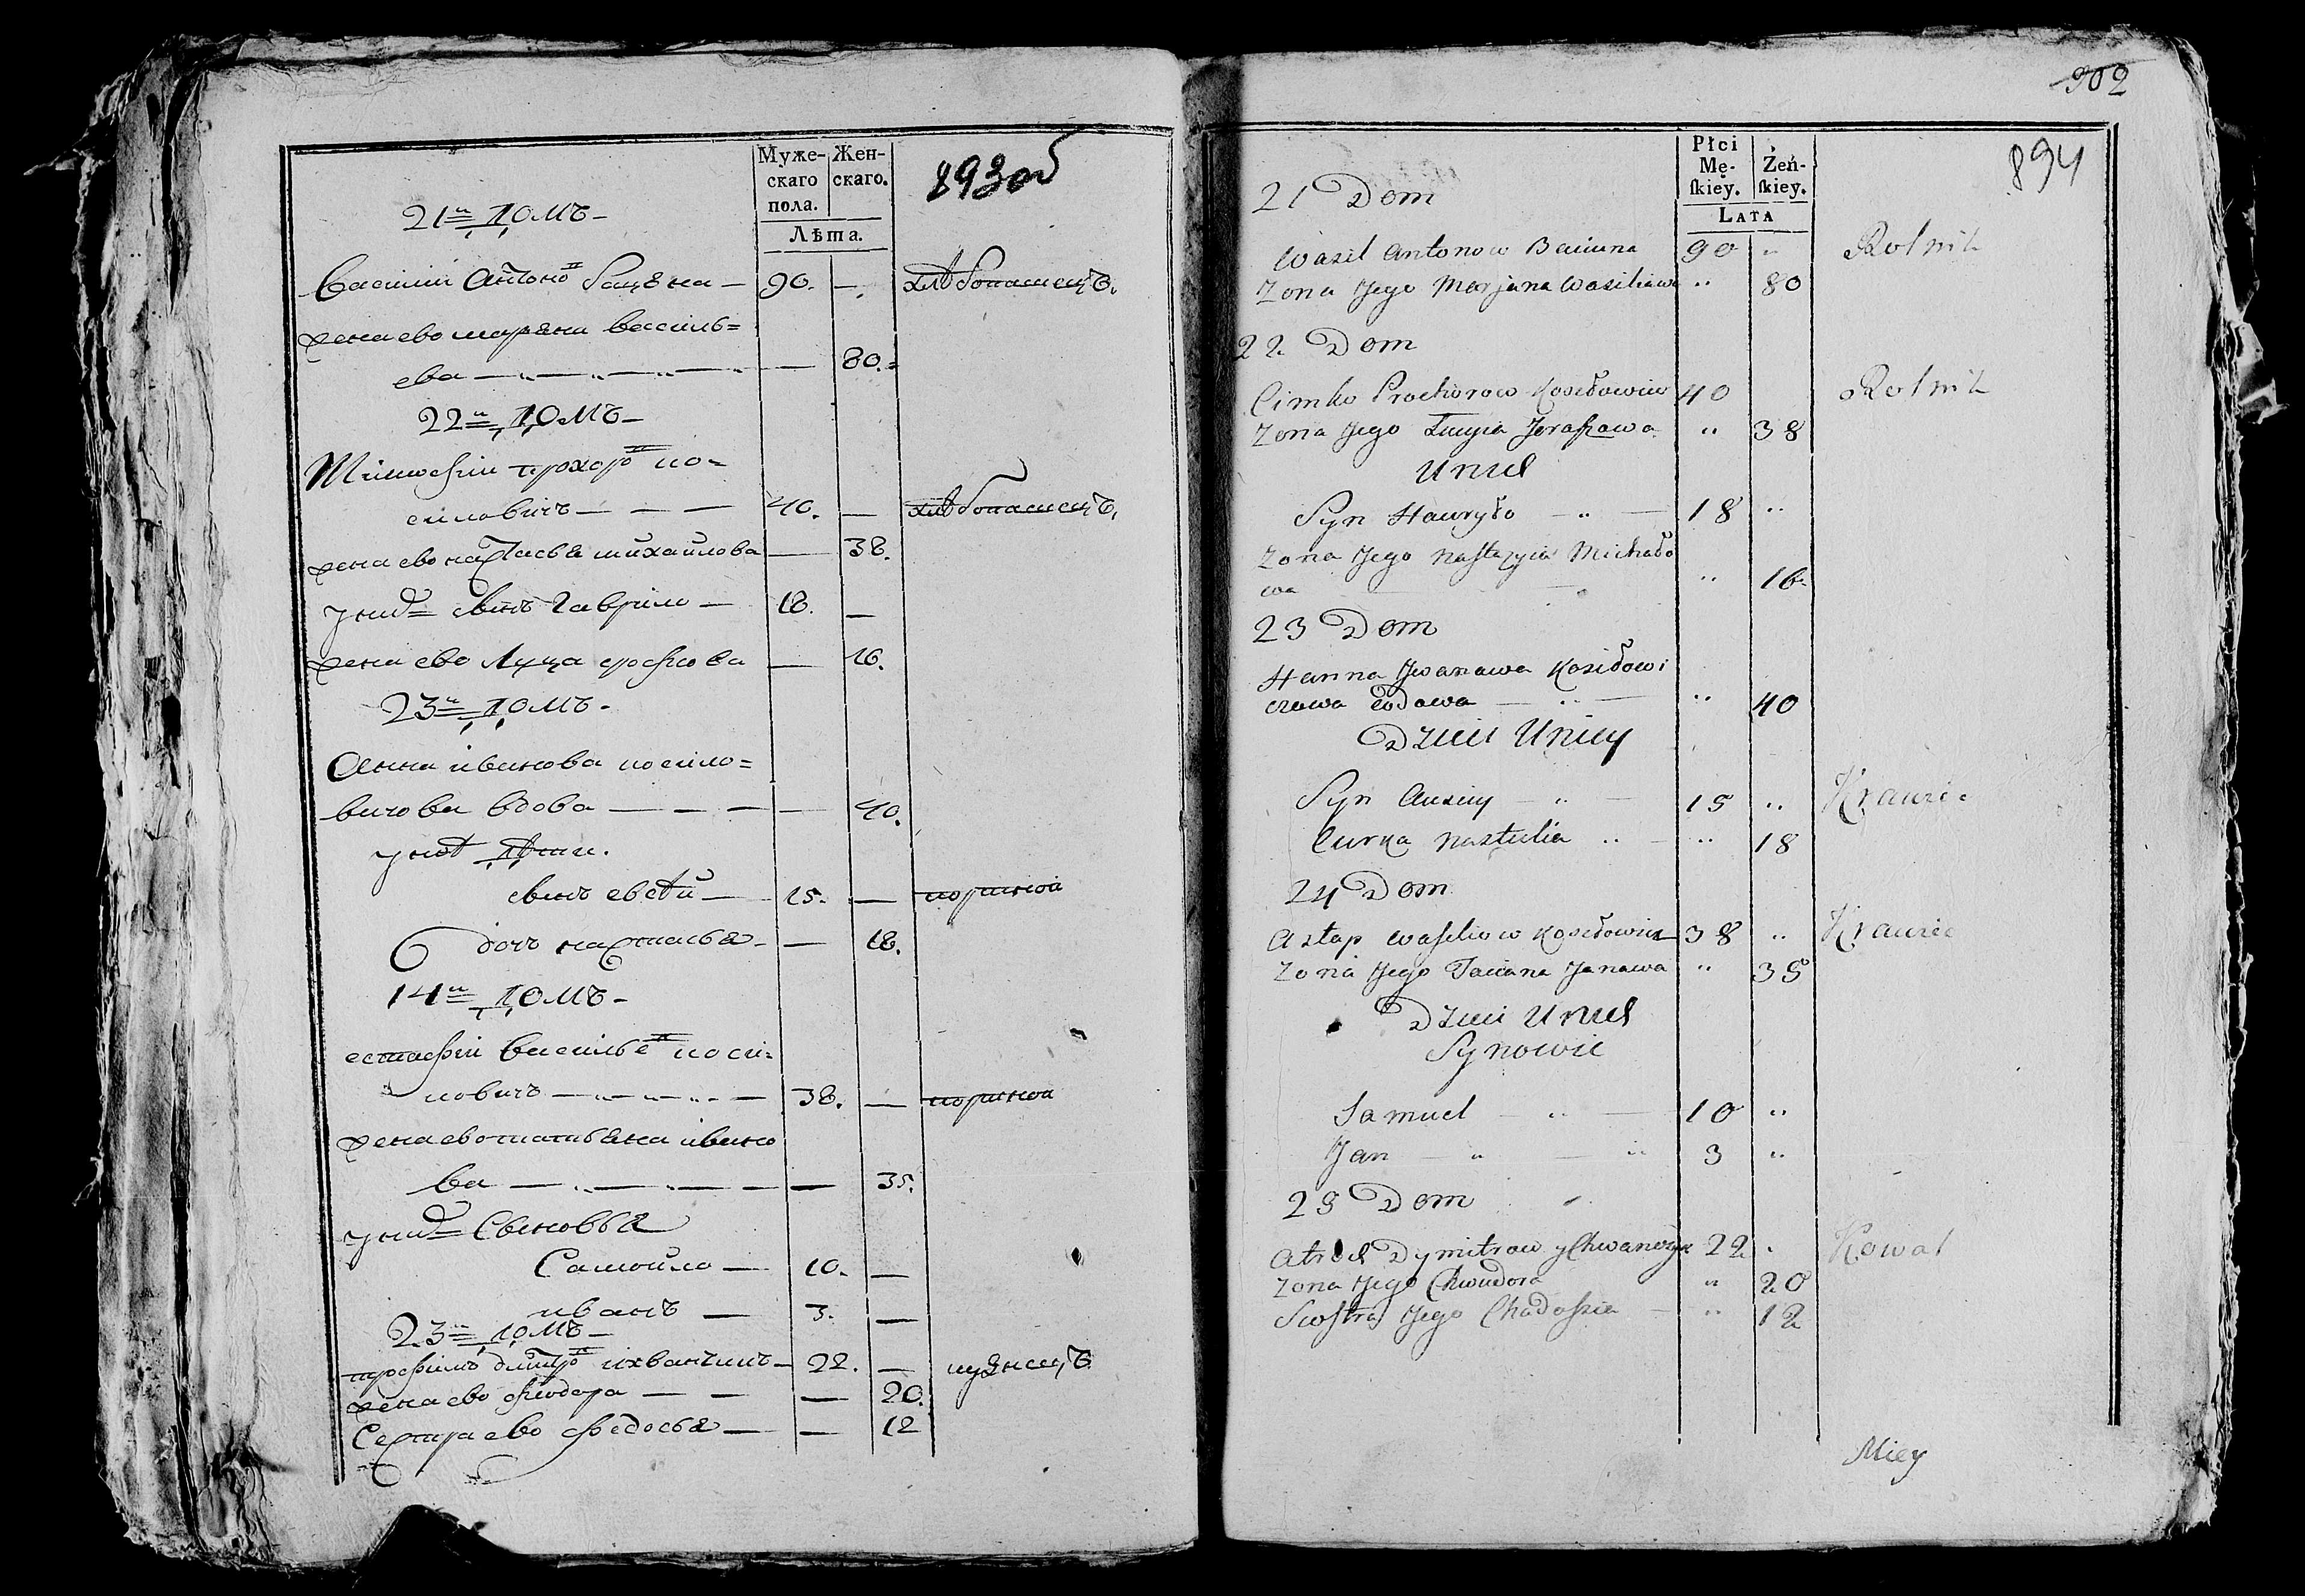 Муже-
скаго
пола.
Жен-
скаго.
Лѣта.
893 об
21й домъ
Василий Антоно Бацяна — 90. — хлѣбопашецъ.
жена ево маряна василь=
ева — 80.
22й домъ
Тимофѣи прохоро ко=
силовичъ — 40. — хлѣбопашецъ.
жена ево настасья михайлова — 38.
униа сынъ Гаврило — 18. —
жена ево Луца — 16.
23й домъ
Анна иванова косило=
вичова вдова — 40.
дѣти.
сынъ — 15. — портной
дочь настасья — 18.
14й домъ
естафѣи василье коси=
ловичъ — 38. — портной
жена ево татьяна ивано
ва — 35.
униа Сыновья
Самойло — 10. —
иванъ — 3. —
23й домъ
трофимъ дмитро — 22. —
жена ево феодора — 20.
Сестра ево федосья — 12
902
894
Płci
Mę-
ſkiey.
Żeń-
ſkiey.
Lata
21 Dom
Wasil Antonow 90 „ Rolnik
Zona Jego Marjana Wasiliawa „ 80
22 Dom
Cimko Prochorow Kosiłowicz 40 Rolnik
Zona Jego Łucyia Jeraszawa „ 38
Unici
Syn Hauryło — „ — 18 „
Zona Jego Nastazyia Michało
wa „ 16
23 Dom
Hanna Jwanawa Kosiłowi
czowa wdowa — „ — „ 40
Dzieci Unicy
Syn Auxiey — „ — 15 „ Krawiec
Curka Nastulia „ — „ 18
24 Dom
Astap Wasiliow Kosiłowicz 38 „ Krawiec
Zona Jego Taciana Janawa „ 35
Dzieci Unici
Synowie
Samuel — „ — 10 „
Jan — „ — „ 3 „
25 Dom
Dymitrow 22 „ Kowal
Zona Jego Chwiedora „ 20
Siostra Jego Chadoszia — „ 12
Miey